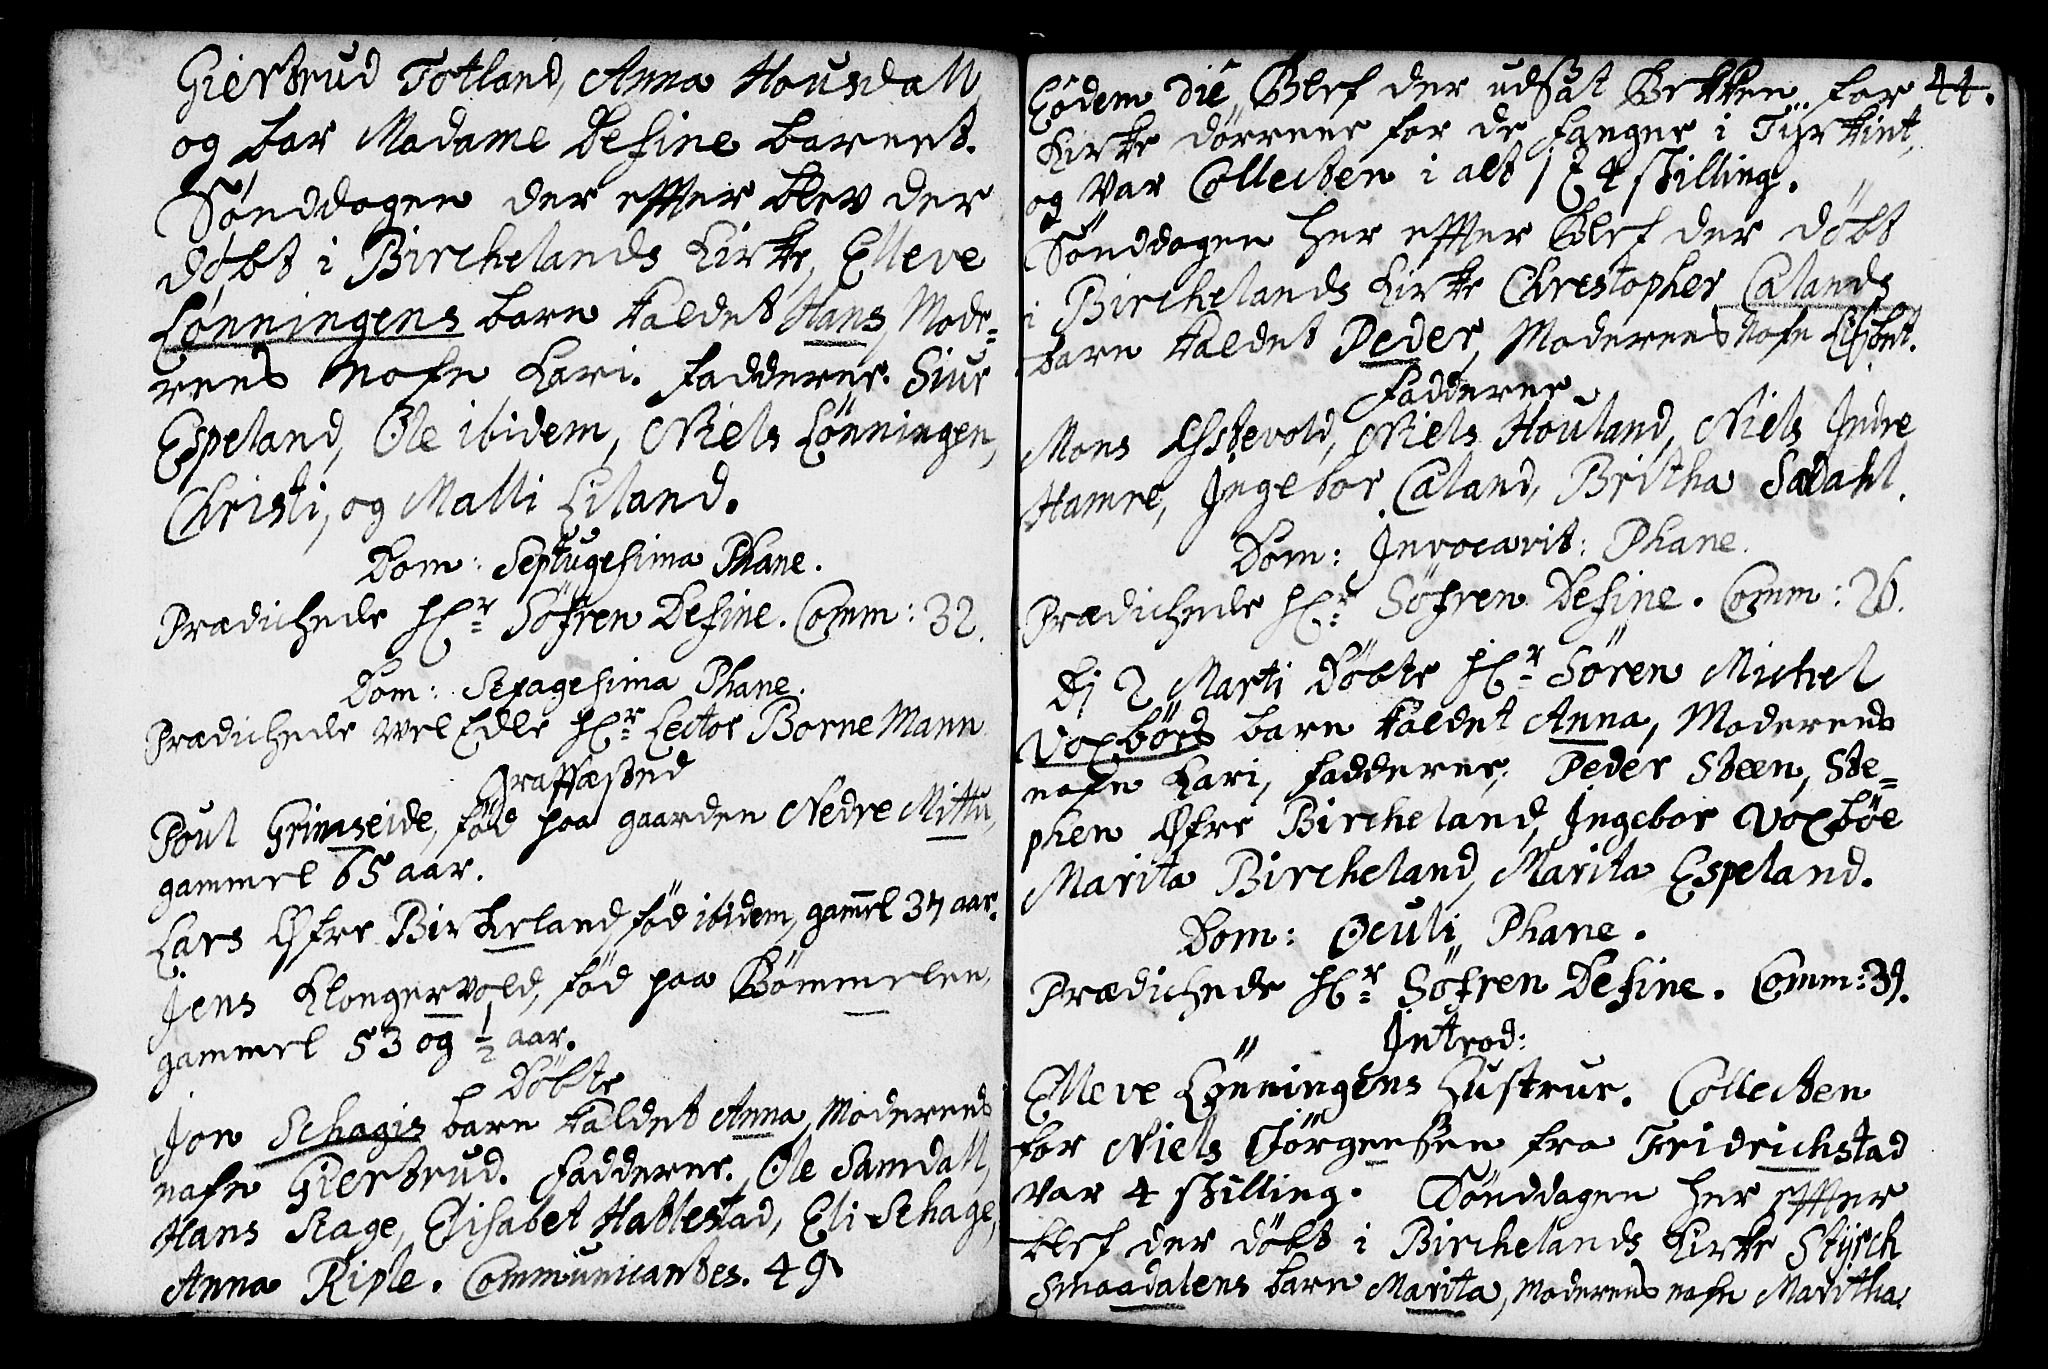 Giertrud Totland, Anna Housdall,
og bar Madame Define barnet.
Sönddagen der effter blev der
döbt i Birchelands Kirke, Elleve
Lönningens barn kaldet Hans, Mode-
rens nafn Kari. Fadderne. Siur
Espeland, Ole ibidem, Niels Lönningen,
Christi, og Malli Liland.
Dom: Septugesima Phane.
Prædichede Hr. Söfren Define. Comm: 32.
Dom: Sexagesima Phane.
Prædichede Wel Edle Hr. Lector Borne Mann
Graffæsted
Poul Grimseide, föd paa gaarden Nedre Mittu,
gammel 65 aar.
Lars Öfre Birkeland, föd ibidem, gammel 37 aar.
Jens Klongervold, föd paa Bömmelen,
gammel 53 og ½ aar.
Döbte
Jon Schagis barn kaldet Anna, Moderens
nafn Giertrud. Fadderne. Ole Samdall,
Hans Skage, Elisabet Hablestad, Eli Schage,
Anna Riple. Communicantes. 49
Eödem Die, Blef der udsat Bekken for 44.
Kirke dörrene for de fanger i Tyrkiet,
og var Collecten i alt 1 4 skilling.
Sönddagen her effter blef der döbt
i Birchelands Kirke Christopher Calands
barn kaldet Peder, Moderens nafn Lisbet.
Fadderne
Mons Helldevold, Niels Houland, Niels Indre
Hamre, Ingebor Caland, Britha Sædahl.
Dom: Invocavit: Phane.
Prædichede Hr. Söfren Define. Comm: 26.
Dj 2 Marti Döbte Hr. Sören Michel
Voxböes barn kaldet Anna, Moderens
nafn Kari, Fadderne, Peder Steen, Ste-
phen Öfre Bircheland, Ingebor Voxböe
Marita Bircheland, Marita Espeland.
Dom: Oculi, Phane.
Prædichede Hr. Söfren Define. Comm: 39.
Introd:
Elleve Lönningens Hustrue. Collecten
for Niels Jörgensen fra Fridrichstad
var 4 skilling. Sönddagen her effter
blef der döbt i Birchelands Kirke Styrch
Smaadalens barn Marita, Moderens nafn Maritha